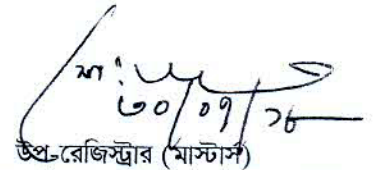 ৩০/০৭/১৮
উপ-রেজিস্ট্রার (মাস্টার্স)